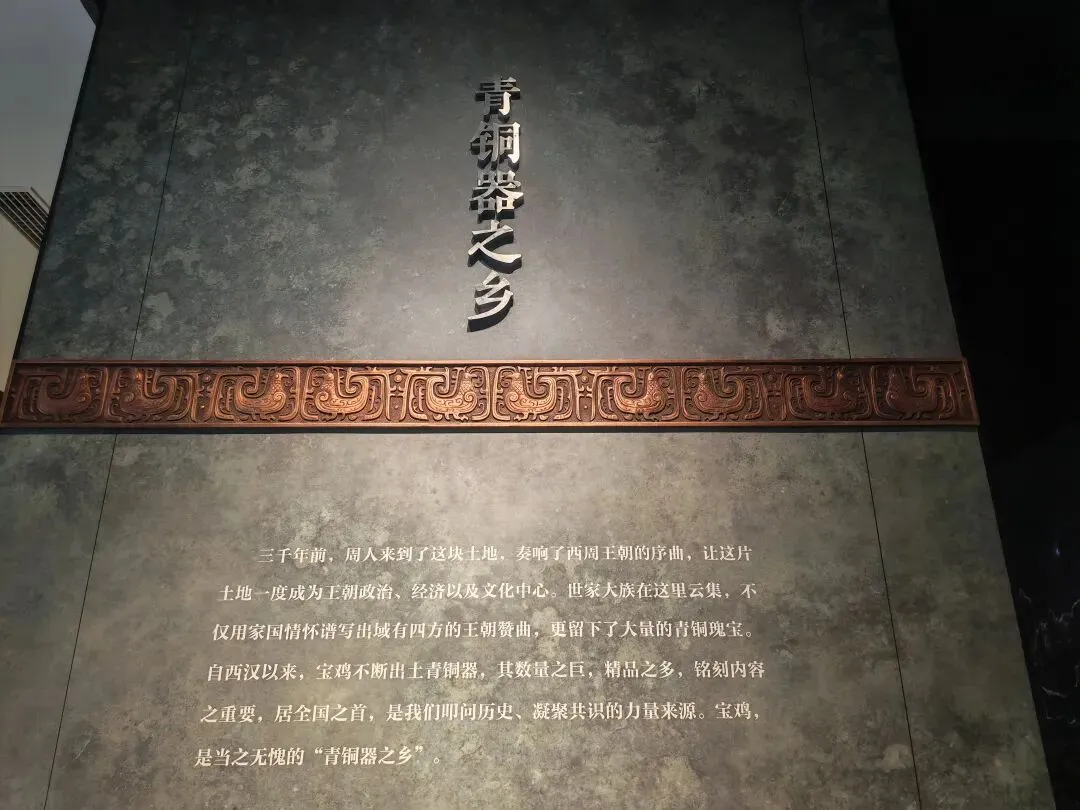 青铜器之乡
三千年前，周人来到了这块土地，奏响了西周王朝的序曲，让这片
土地一度成为王朝政治、经济以及文化中心。世家大族在这里云集，不
仅用家国情怀谱写出域有四方的王朝赞曲，更留下了大量的青铜瑰宝。
自西汉以来，宝鸡不断出土青铜器，其数量之巨，精品之多，铭刻内容
之重要，居全国之首，是我们叩问历史、凝聚共识的力量来源。宝鸡，
是当之无愧的“青铜器之乡”。